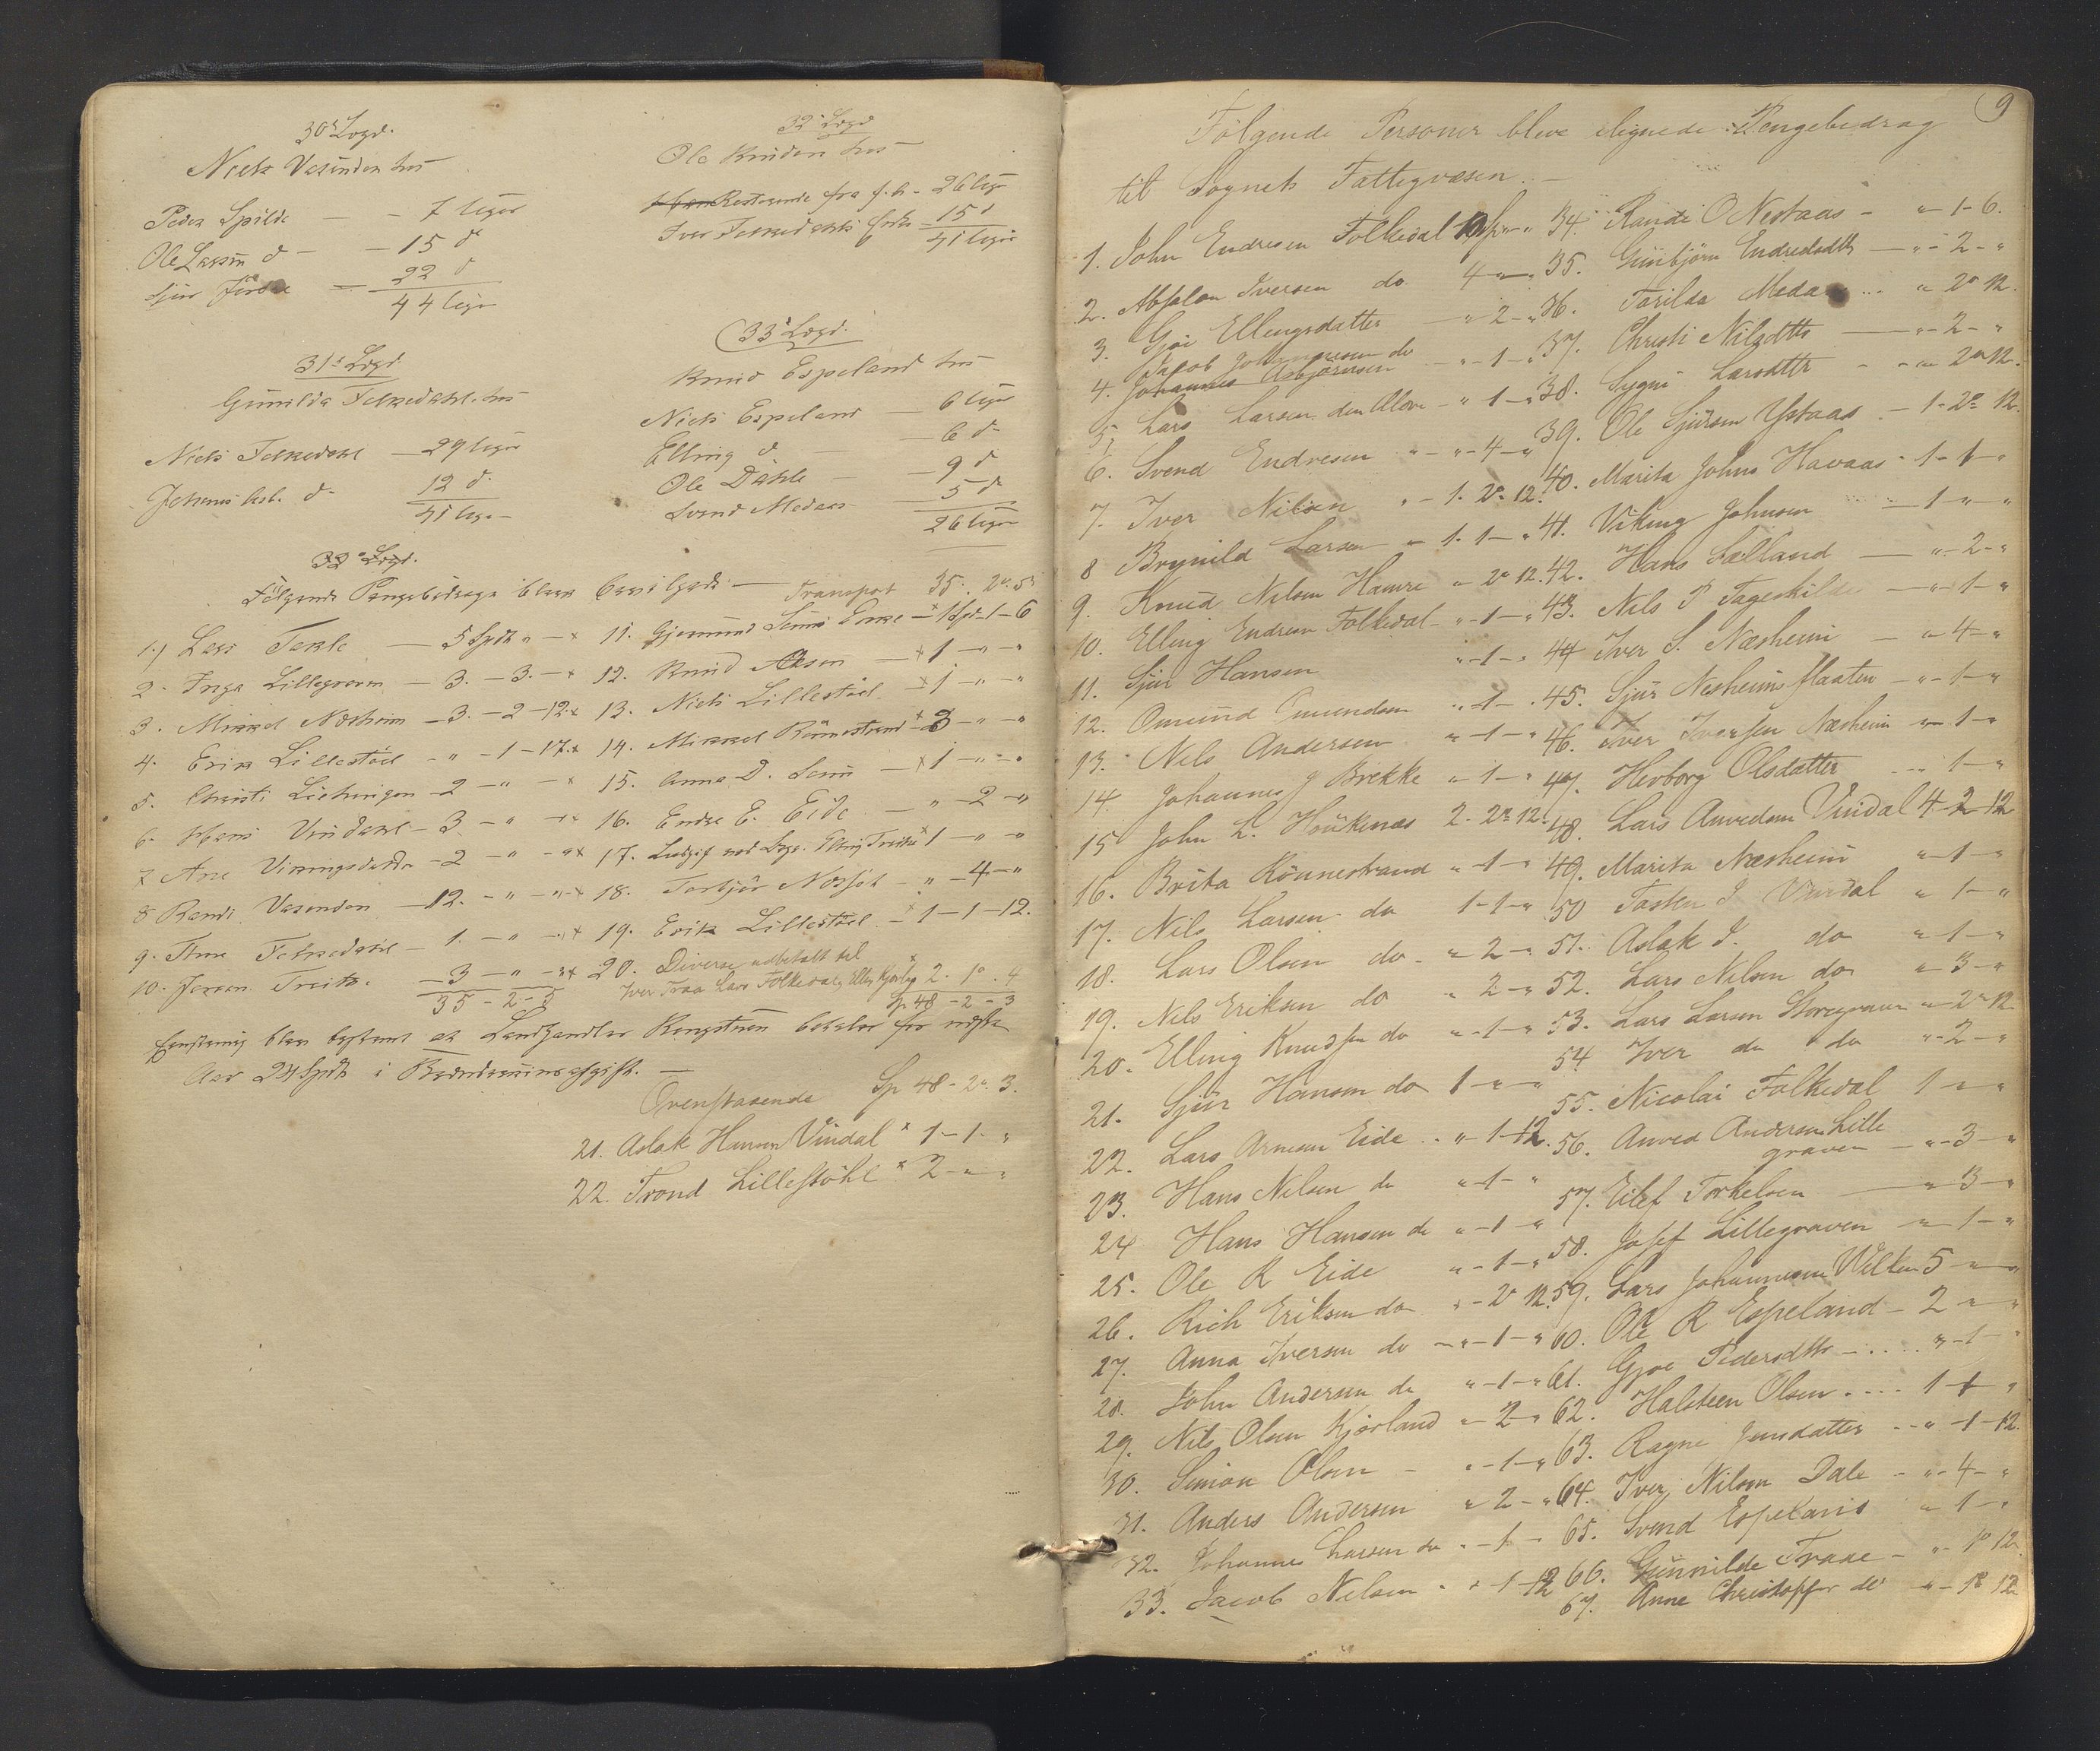 30te Lægd.
Niels Vasenden hos
Peder Spilde — - 7 uger
Ole Larsen d - — 15 d
SjurFørde — 22 d
44 uger
31te Lægd
Gunilda Folkedahl hos
Niels Folkedahl — 29 uger
Johannes Asb. d - 12 d
41 uger
32te Lægd
Ole Knudsen hos
Resterende fra f. A - 26 uger
Iver Folkedahls 15 d
41 uger
33te Lægd.
Knud Espeland hos
Niels Espeland — 6 uger
Elling d — 6 d
Ole Dahle — 9 d
Svend Medaas 5 d
26 uger
32te Lægd.
Følgende Pengebidrage bleve bevilgede —
1.) Lars Tekle — 5 Spdlr " — x
2. Inga Lillegraven — 3. — 3. — x
3. Mikkel Næsheim — 3. — 2 — 12. x
4. Erik Lillestøel - " - 1 — 17. x
5. Christi — 2 — " — x
6. Hans Vindahl — 3. — " — x
7 Ane Vikingsdatter — 2 — " — " x
8 Randi Vasenden — 12. — " — " x
9. Ane Folkedahl — 1. — " — " x
10. Jørgen Treito. — 3 — " — " x
35 - 2 - 5
Transport 35. 2. 5
11. Gjermund Sønne — x 1 Spd - 1 - 6
12. Knud Aksen — x 1 — " — "
13. Niels Lillestøel — x 1 — " — "
14. Mikkel Rønnestrand x 3 — " — "
15. Anna D. — x 1 — " — "
16. Endre E. Eide — " — 2 — "
17. x 1 — " — "
18. Torbjør — " — 4 — "
19. Erik Lillestøel — x 1 — 1 — 12.
20. Diverse udbetalt til
Iver Traa Lars Folkedal, 2. 1. 4
Sp 48 - 2 - 3
blev bestemt at Landhandler Kongstun betaler for næste
Aar 24 Spdlr i Brændeviinsafgift. —
Ovenstaaende Sp 48 - 2. 3.
21. Aslak Hansen Vindal x 1 — 1 - "
22. Trond Lillestøhl x 2 — " — "
9
Følgende Personer bleve lignede Pengebidrag
til Sognets Fattigvæsen. —
1. John Endresen Folkedal
2. Absalon Iversen do 4 — "
3. Gjøe Ellingsdatter — " 2 — "
4. Jacob Johannesen do — " — 1 — "
Johannes Asbjørnsen
5. Lars Larsen den Aldre — " 1 — "
6. Svend Endresen " — " — 4 — "
7. Iver Nilsen " — 1. 2. 12.
8 Brynild Larsen — 1. 1 — "
9. Knud Nilsen Hamre " 2. 12.
10. Elling Endresen Folkedal — " — 1 — "
11. Sjur Hansen " — 1 — "
12. Omund Omundsen " — 1 — "
13. Nils Andersen " — 1 — "
14 Johannes J Brekke " — 1 — "
15 John L. Houkenæs 2. 2. 12.
16. Brita Rönnestrand " — 1 — "
17. Nils Larsen do 1 — 1 — "
18. Lars Olsen do - " — 2 — "
19. Nils Eriksen do " 2 — "
20. Elling Knudsen do " — 1 — "
21. Sjur Hansen do 1 — " — "
22. Lars Arnesen Eide " — 1 — 12.
23. Hans Nilsen do " — 1 — "
24 Hans Hansen do " — 1 — "
25. Ole R Eide " — 1 — "
26. Rich Eriksen do " — 2. 12.
27. Anna Iversen do — " — 1 — "
28. John Andersen do " — 1 — "
29. Nils Olsen Kjerland — 2 — "
30. Simon Olsen — " — 1 — "
31. Anders Andersen " 2 — "
32. Johannes Larsen do " — 1 —
33. Jacob Nilsen " " — 1 — 12
34. Randi O Nestaas — " — 1 - 6.
35. Gunbjörn Endresdatter — " — 2 — "
36. Torilda Medaas " 2. 12.
37. Christi Nilsdtr — " — 2 — "
38. Sygni Larsdtr — " 2. 12.
39. Ole Sjursen Ystaas — 1 - 2. 12.
40. Marita Johns Havaas — 1 — 1 — "
41. Viking Johnsen — 1 — " — "
42. Hans Sælland — " — 2 — "
43. Nils P Fageskilde — " — 1 — "
44 Iver S. Næsheim — " — 4 — "
45. Sjur Nesheimsflaaten — " — 1 — "
46. Iver Iversen Næsheim — " 1 — "
47. Herborg Olsdatter 1 — "
48. Lars Anvedsen Vindal 4 — 2 — 12
49. Marita Næsheim " — 1 — "
50 Vindal " 1 — "
51. Aslak I. do " — 1 — "
52. Lars Nilsen do " — 3 — "
53. Lars Larsen Storegraven " — 2. 12
54 Iver do do " — 2 — "
55. Nicolai Folkedal 1 — " — "
56. Anved Andersen Lille
graven — " — 3 — "
57. Eilef Torkelsen — " — 3 — "
58. Josef Lillegraven — " — 1 — "
59. Lars Johannesen Velken 5 — " — "
60. Ole R Espeland — 2 — " — "
61. Gjøe Pedersdtr — " — 1 —
62. Halsteen Olsen 1 — 1 — "
63. Ragne Jensdatter — " — 1 — 12.
64. Iver Nilsen Dale — " — 4 — "
65. Svend Espeland " — 1 — "
66. Gunnilde Traae — " — 1. 12.
67. Anne Christoffer do — " — 1. 12